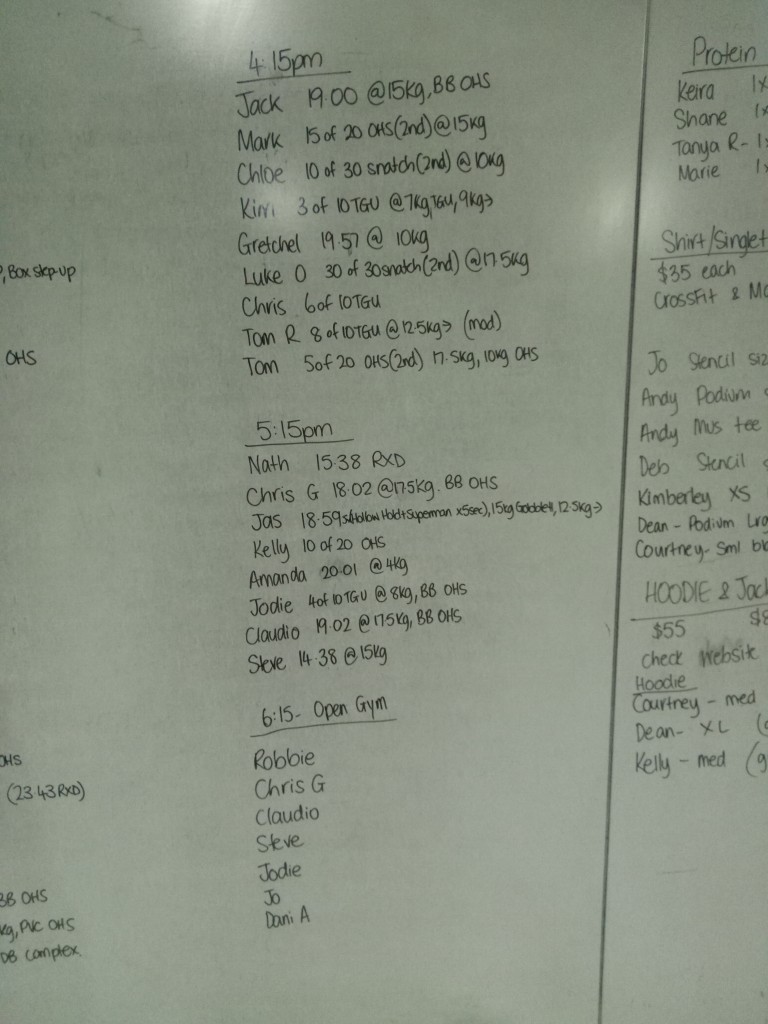 , Box step-up
OHS
OHS
(23.43 RXD)
BB OHS
kg, PVC OHS
DB complex
4:15pm
Jack 19.00 @15kg, BB OHS
Mark 15 of 20 OHS (2nd) @15kg
Chloe 10 of 30 snatch (2nd) @ 10kg
Kirri 3 of 10 TGU @ 7kg TGU, 9kg→
Gretchel 19.57 @ 10kg
Luke O 30 of 30 snatch (2nd) @ 17.5kg
Chris 6 of 10 TGU
Tom R 8 of 10 TGU @ 12.5kg→ (mod)
Tom 5 of 20 OHS (2nd) 17.5kg, 10kg OHS
5:15pm
Nath 15.38 RXD
Chris G 18.02 @17.5kg. BB OHS
Jas 18.59 Hollow Hold + Superman x5sec), 15kg 12.5kg→
Kelly 10 of 20 OHS
Amanda 20.01 @ 4kg
Jodie 4 of 10 TGU @ 8kg, BB OHS
Claudio 19.02 @ 17.5kg, BB OHS
Steve 14.38 @ 15kg
6:15- Open Gym
Robbie
Chris G
Claudio
Steve
Jodie
Jo
Dani A
Protein
Keira 1x
Shane 1x
Tanya R- 1x
Marie 1x
Shirt/Singlet
$35 each
CrossFit & Mo
Jo Stencil siz
Andy Podium
Andy Mus tee
Deb Stencil
Kimberley XS
Dean - Podium Lrg
Courtney- Sml bl
HOODIE & Jack
$55 $8
check website
Hoodie
Courtney - med
Dean- XL (
Kelly - med (g